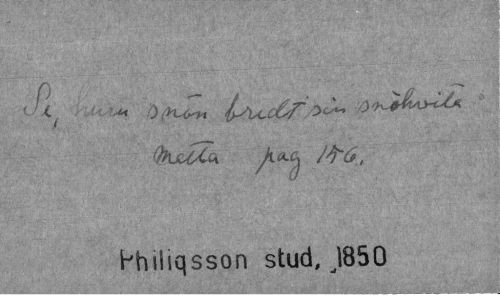 Se, huru snön bredt sin snöhvita
matta pag 156.
Philiqsson stud, 1850